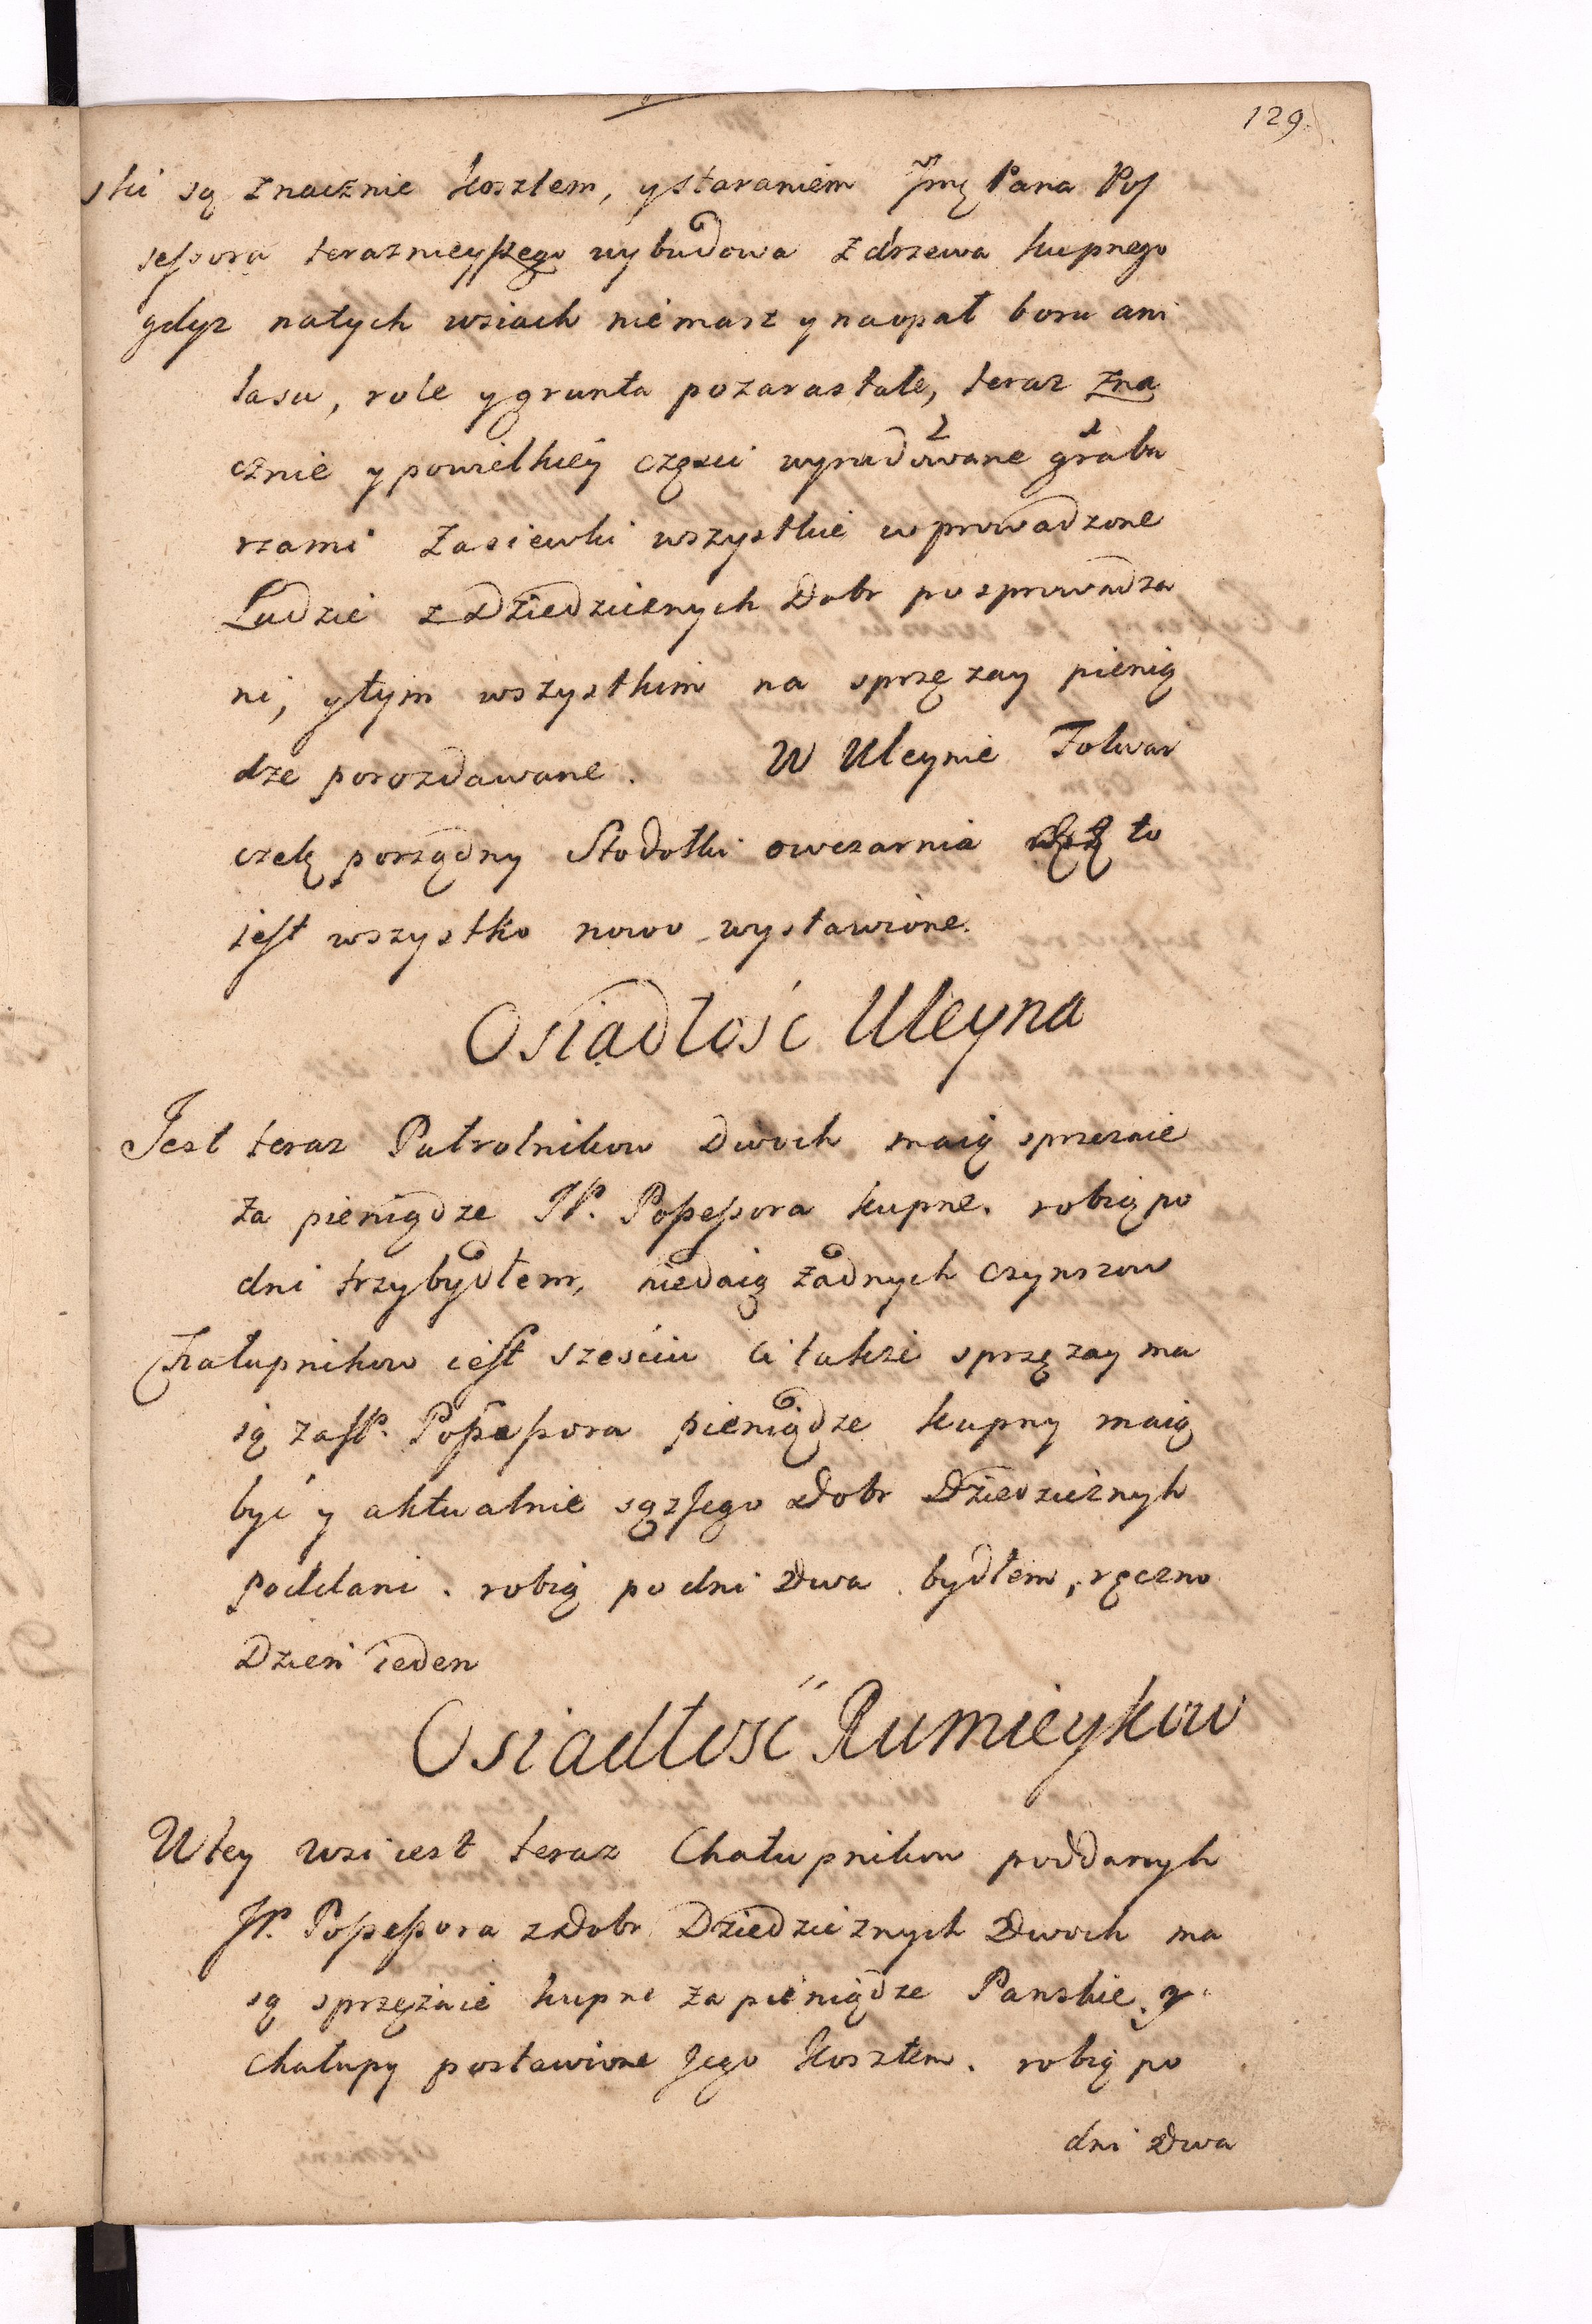 129.
ski są znacznie kosztem, y staraniem Jmę Pana Pos
sessora teraznieyszego wybudowa z drzewa kupnego
gdyz natych wsiach niemasz y naopał boru ani
lasu, role y grunta pozarastałe, teraz zna
cznie y powielkiey częsci wyradowane graba
rzami Zasiewki wszystkie wprowadzone
Ludzie z Dziedzicznych Dobr posprowadza
ni, y tym wszystkim na sprzęzay pienią
dze porozdawane. W Uleynie Folwar
czek porządny Stodołki owczarnia to
iest wszystko nowo wystawione.
Osiadłość Uleyna
Jest teraz Pułrolnikow Dwoch maią sprzeznie
za pieniądze JP. Possessora kupne. robią po
dni trzy bydłem, niedaią żadnych czynszow
Chałupnikow iest sześciu ci takze sprzęzay ma
ią za JP. Possessora pieniądze kupny maią
być y aktualnie są z Jego Dobr Dziedzicznych
poddani. robią po dni Dwa bydłem, ręczno
Dzień ieden
Osiadłość Rumieykow
W tey wsi iest teraz Chałupnikow poddanych
JP. Possessora z Dobr Dziedzicznych Dwoch ma
ią sprzężaie kupne za pieniądze Panskie y
Chałupy postawione Jego kosztem. robią po
dni Dwa